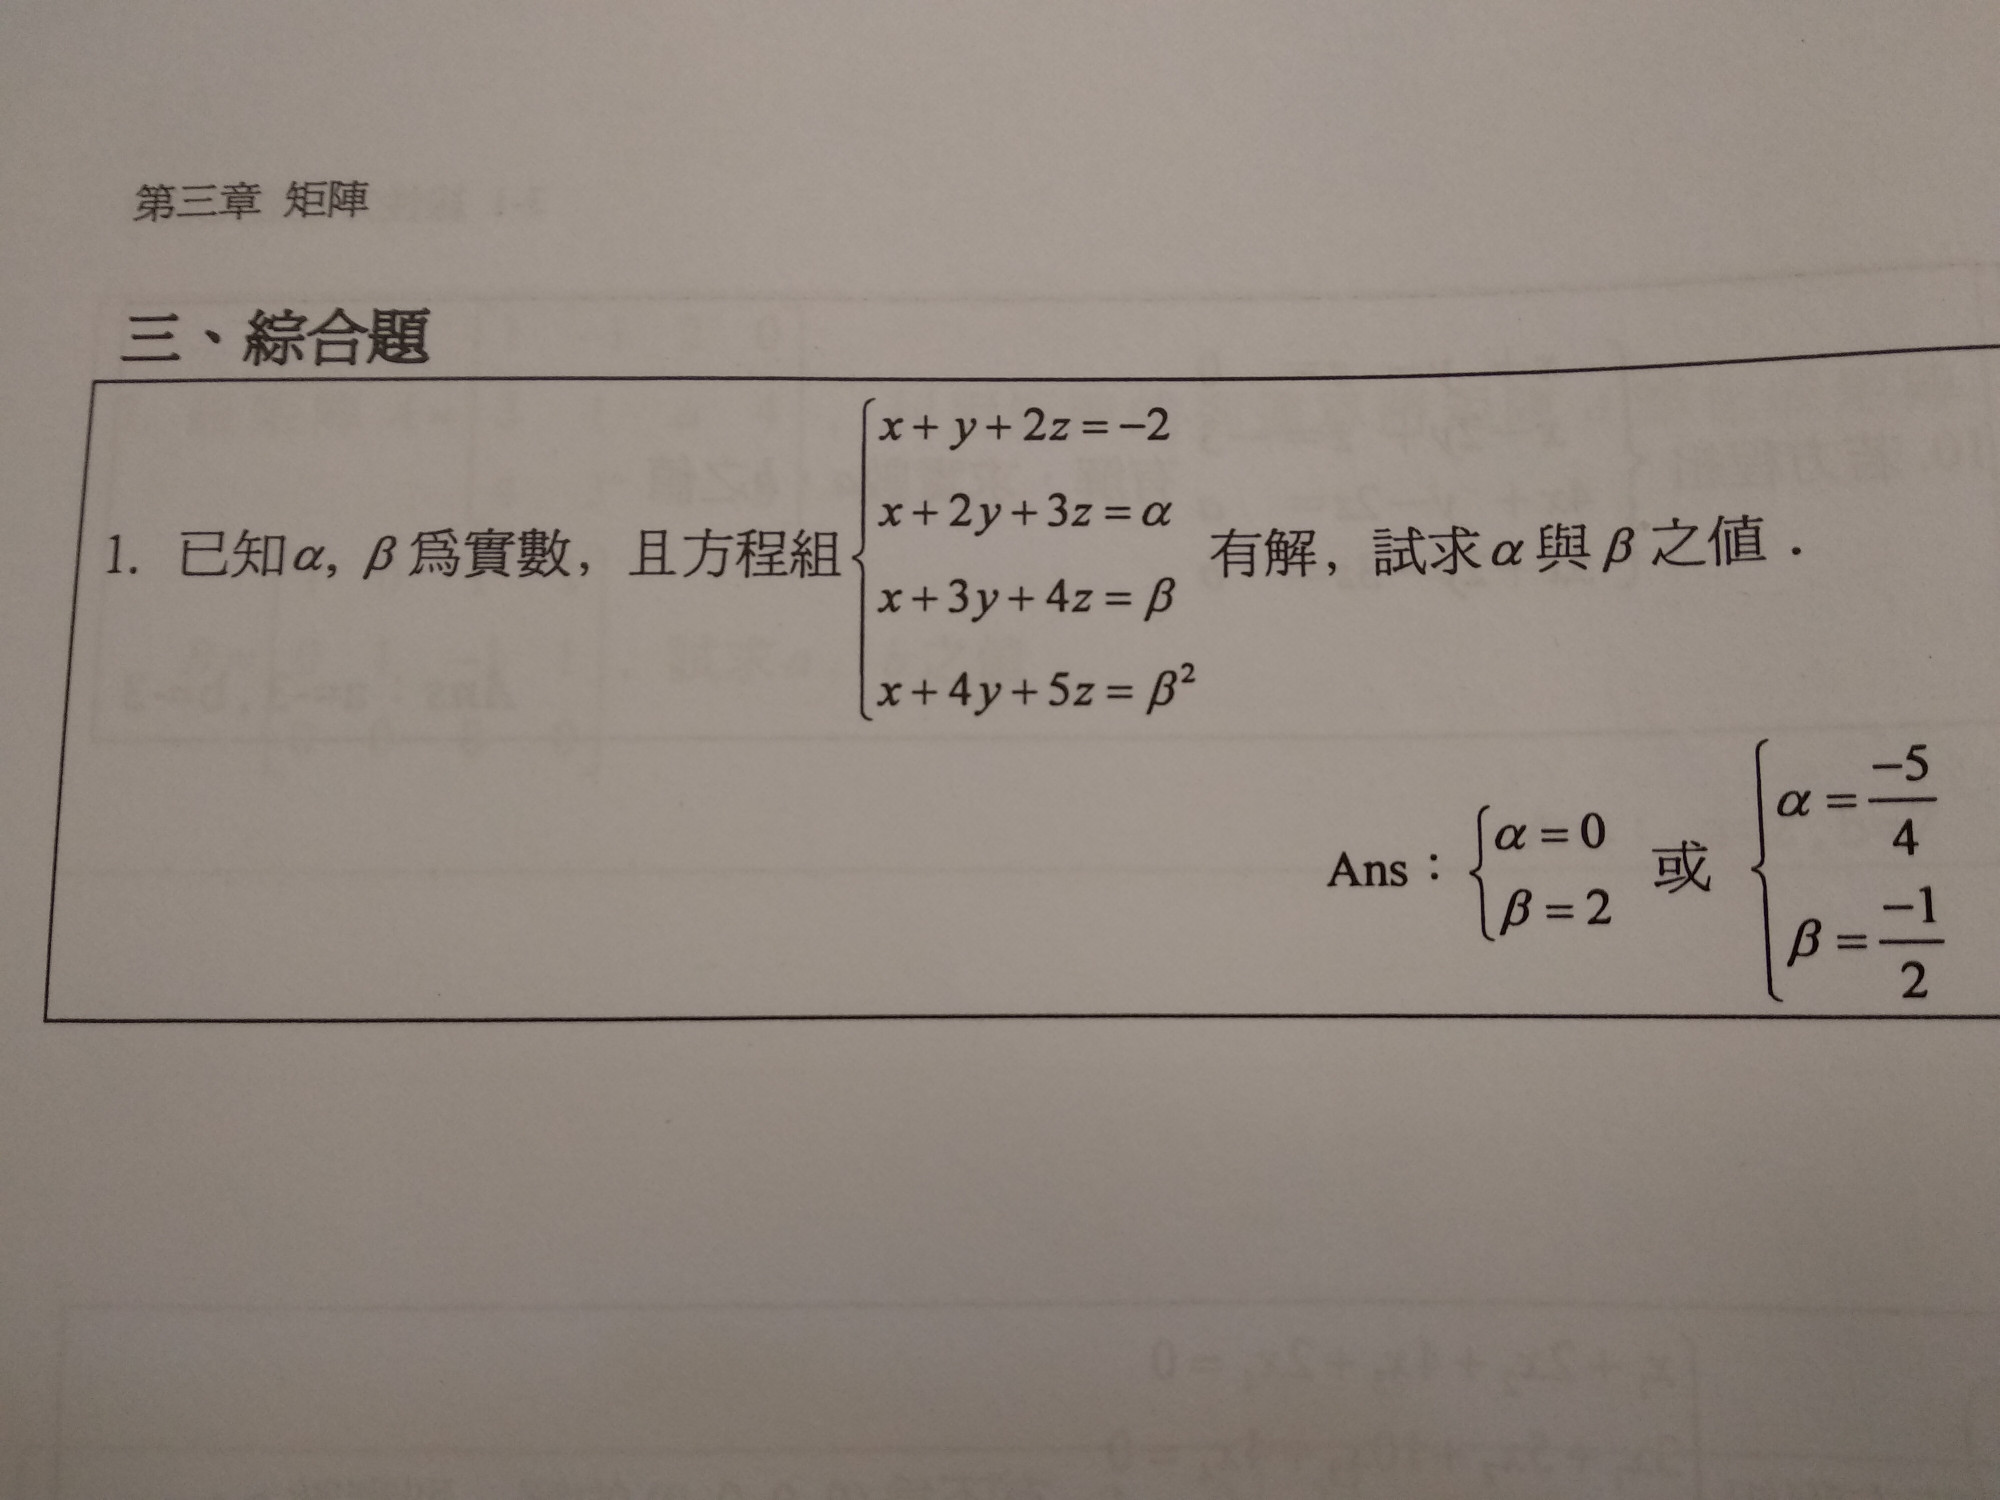 第三章 矩陣
三、綜合題
1. 已知α, β爲實數，且方程組
x+y+2z=-2
x+2y+3z=α
x+3y+4z=β
x+4y+5z=β²
有解，試求α與β之值．
Ans：{α=0 β=2 或 {α=-5/4 β=-1/2